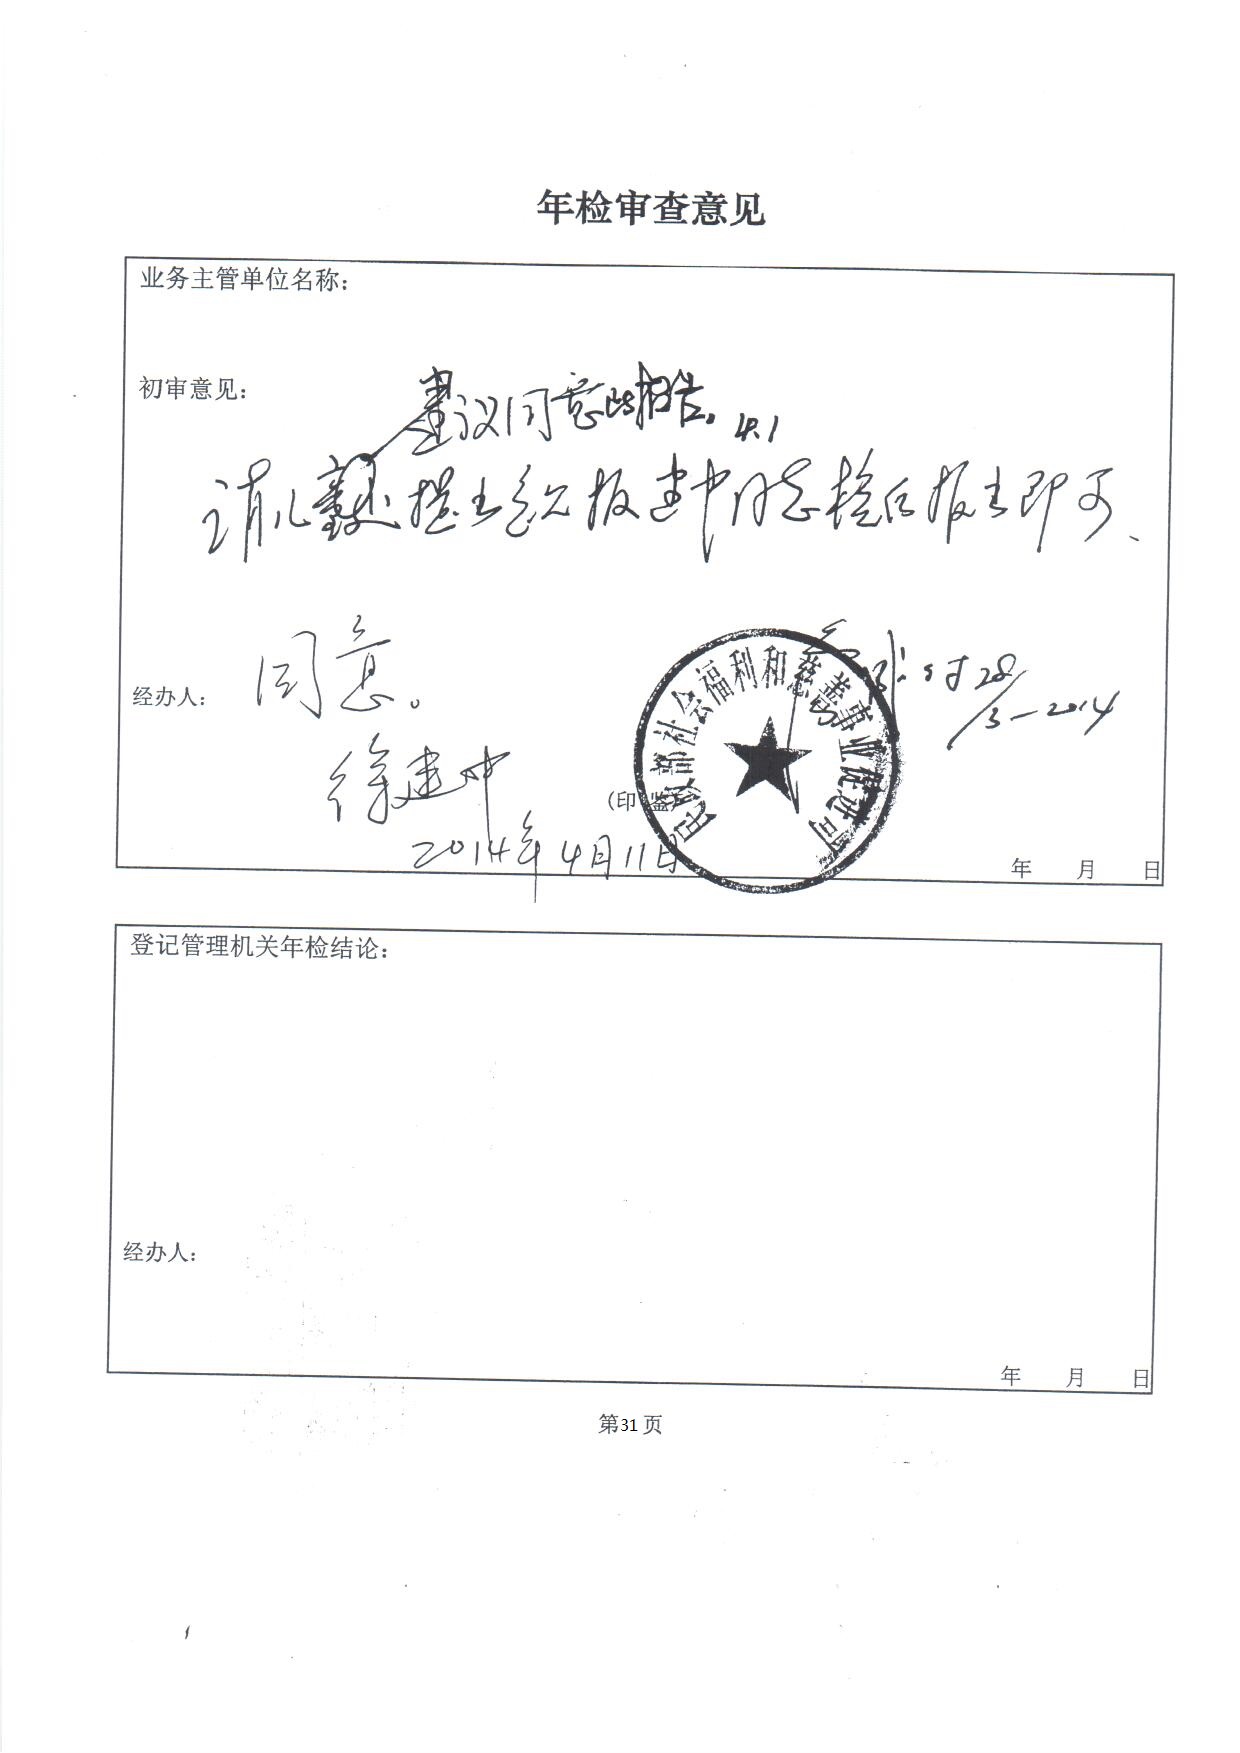 年检审查意见
业务主管单位名称：
初审意见：
建议同意此报告。4.1
请儿童处提出意见报建中同志核后报出即可、
同意。
28/3-2014
经办人：
徐建中
（印 鉴）
民政部社会福利和慈善事业促进司
2014年4月11日
年 月 日
登记管理机关年检结论：
经办人：
年 月 日
第31页